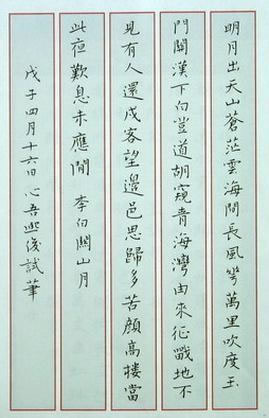 明月出天山蒼茫雲海間長風幾萬里吹度玉
門關漢下白登道胡窺青海灣由來征戰地不
見有人還戍客望邊邑思歸多苦顏高樓當
此夜歎息未應閒 李白關山月
戊子四月十六日心吾試筆